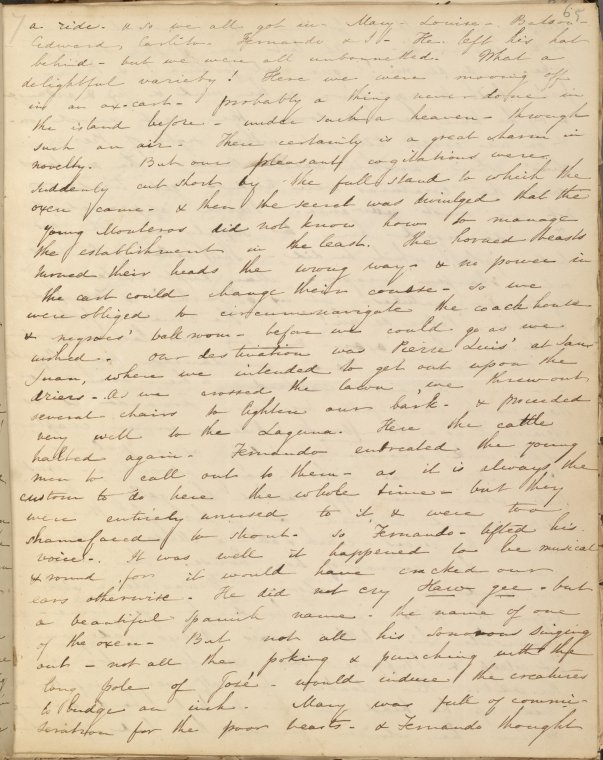 65
a ride. & so we all got in - Mary - Louise -
Edward, Carlito. Fernando & I - He left his hat
behind - but we were all unbonnetted. What a
delightful variety! Here we were moving off
in an ox-cart - probably a thing never done in
the island before - under such a heaven - through
such an air - There certainly is a great charm in
novelty. But our pleasant cogitations were
suddenly cut short by the full stand to which the
oxen came - & then the secret was divulged that the
young Monteros did not know how to manage
the establishment in the least. The horned beasts
turned their heads the wrong way - & no power in
the cart could change their course - so we
were obliged to circumnavigate the coach house
& negroes' ball room - before we could go as we
wished. - Our destination was Pierre Luis' at San
Juan, where we intended to get out upon the
driers - As we crossed the lawn we threw out
several chairs to lighten our bark - & proceeded
very well to the Laguna. Here the cattle
halted again - Fernando entreated the young
men to call out to them - as it is always the
custom to do here the whole time - but they
were entirely unused to it & were too
shamefaced to shout - so Fernando - lifted his
voice - It was well it happened to be musical
& round for it would have cracked our
ears otherwise. He did not cry Haw gee - but
a beautiful spanish name - the name of one
of the oxen - But not all his sonorous singing
out - not all the poking & punching with the
long pole of José - would induce the creatures
to budge an inch. Mary was full of commi-
seration for the poor beasts - & Fernando thought